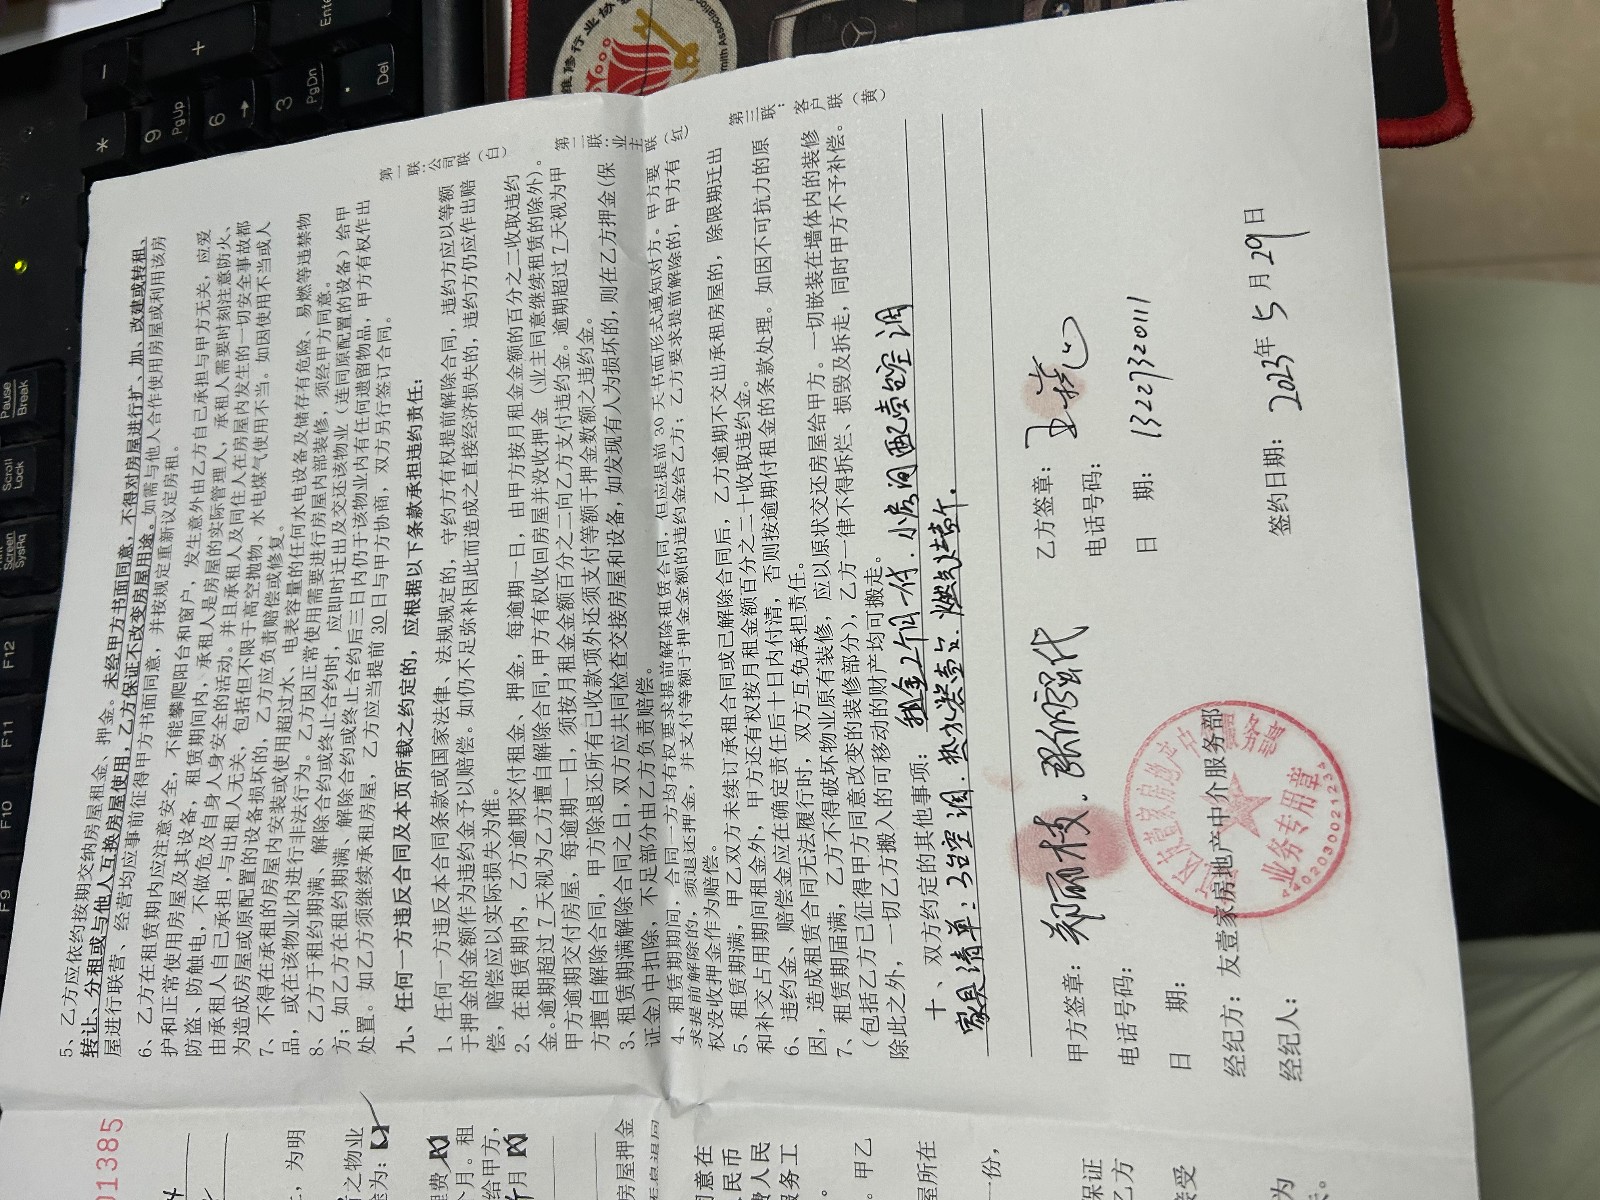 5、乙方应依约按期交纳房屋租金、押金。未经甲方书面同意，不得对房屋进行扩、加、改建或转租、
转让、分租或与他人互换房屋使用，乙方保证不改变房屋用途。如需与他人合作使用房屋或利用该房
屋进行联营、经营均应事前征得甲方书面同意，并按规定重新议定房租。
6、乙方在租赁期内应注意安全，不能攀爬阳台和窗户，发生意外由乙方自己承担与甲方无关，应爱
护和正常使用房屋及其设备，租赁期间内、承租人是房屋的实际管理人，承租人需要时刻注意防火、
防盗、防触电，不做危及自身人身安全的活动。并且承租人及同住人在房屋内发生的一切安全事故都
由承租人自己承担，与出租人无关，包括但不限于高空抛物、水电煤气使用不当。如因使用不当或人
为造成房屋或原配置的设备损坏的，乙方应负责赔偿或修复。
7、不得在承租的房屋内安装或使用超过水、电表容量的任何水电设备及储存有危险、易燃等违禁物
品，或在该物业内进行非法行为。乙方因正常使用需要进行房屋内部装修，须经甲方同意。
8、乙方于租约期满、解除合约或终止合约时，应即时迁出及交还该物业（连同原配置的设备）给甲
方；如乙方在租约期满、解除合约或终止合约后三日内仍于该物业内有任何遗留物品，甲方有权作出
处置。如乙方须继续承租房屋，乙方应当提前30日与甲方协商，双方另行签订合同。
九、任何一方违反合同及本页所载之约定的，应根据以下条款承担违约责任：
1、任何一方违反本合同条款或国家法律、法规规定的，守约方有权提前解除合同，违约方应以等额
于押金的金额作为违约金予以赔偿。如仍不足弥补因此而造成之直接经济损失的，违约方仍应作出赔
偿，赔偿应以实际损失为准。
2、在租赁期内，乙方逾期交付租金、押金，每逾期一日，由甲方按月租金金额的百分之二收取违约
金。逾期超过7天视为乙方擅自解除合同，甲方有权收回房屋并没收押金（业主同意继续租赁的除外）。
甲方逾期交付房屋，每逾期一日，须按月租金金额百分之二向乙方支付违约金。逾期超过7天视为甲
方擅自解除合同，甲方除退还所有已收款项外还须支付等额于押金数额之违约金。
3、租赁期满解除合同之日，双方应共同检查交接房屋和设备，如发现有人为损坏的，则在乙方押金（保
证金）中扣除，不足部分由乙方负责赔偿。
4、租赁期期间，合同一方均有权要求提前解除租赁合同，但应提前30天书面形式通知对方。甲方要
求提前解除的，须退还押金，并支付等额于押金金额的违约金给乙方；乙方要求提前解除的，甲方有
权没收押金作为赔偿。
5、租赁期满，甲乙双方未续订承租合同或已解除合同后，乙方逾期不交出承租房屋的，除限期迁出
和补交占用期间租金外，甲方还有权按月租金额百分之二十收取违约金。
6、违约金、赔偿金应在确定责任后十日内付清，否则按逾期付租金的条款处理。如因不可抗力的原
因，造成租赁合同无法履行时，双方互免承担责任。
7、租赁期届满，乙方不得破坏物业原有装修，应以原状交还房屋给甲方。一切嵌装在墙体内的装修
（包括乙方已征得甲方同意改变的装修部分），乙方一律不得拆烂、损毁及拆走，同时甲方不予补偿。
除此之外，一切乙方搬入的可移动的财产均可搬走。
十、双方约定的其他事项：租金2个月一付.小房间配壹台空调
家具清单：3台空调.热水器壹台.燃气灶壹个.
甲方签章：郑丽枝.
乙方签章：王
电话号码：
电话号码：13227320111
日 期：
日 期：
经纪方：友壹家房地产中介服务部
经纪人：
签约日期：2023年5月29日
业务专用章
第一联：公司联（白）
第二联：业主联（红）
第三联：客户联（黄）
01385
，为明
之物业
个月。租
给甲方，
房屋押金
同意在
民币
费人民
服务工
。甲乙
屋所在
一份，
保证
乙方
接受
为
Pause
Break
Scroll
Lock
Screen
SysRq
F12
F11
F10
F9
*
-
9
PgUp
+
6
3
PgDn
.
Del
Ente
维修行业协
smith Association